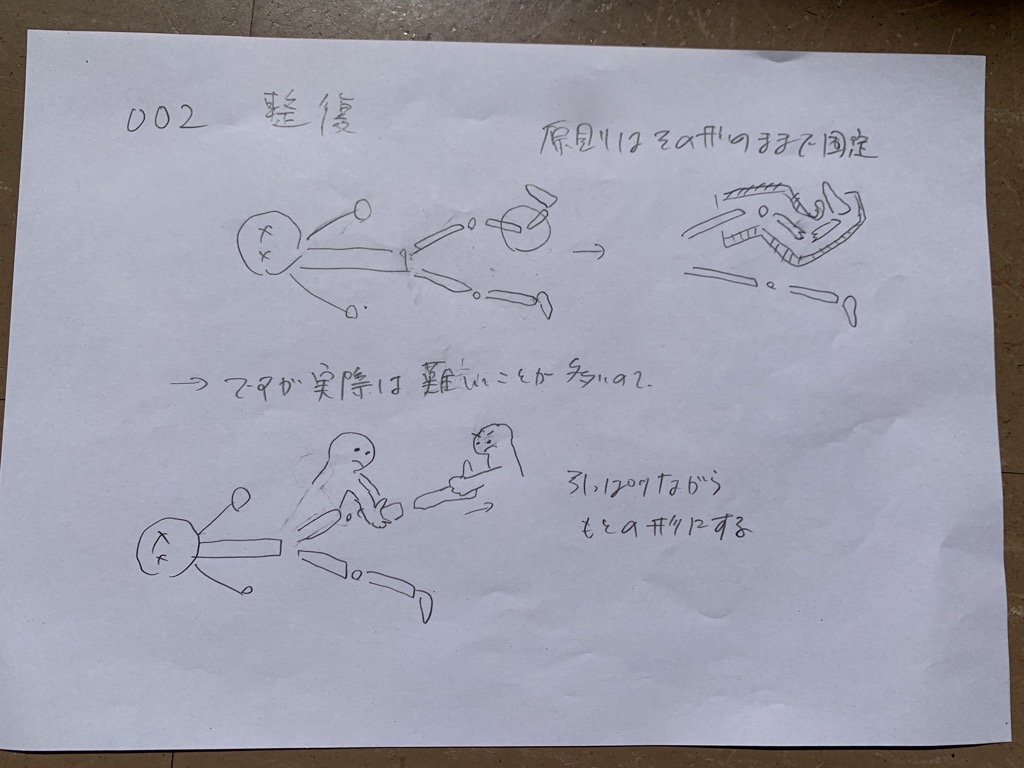 002 整復
原則はその形のままで固定
→
→ ですが実際は難しいことが多いので、
引っぱりながら
もとの形にする